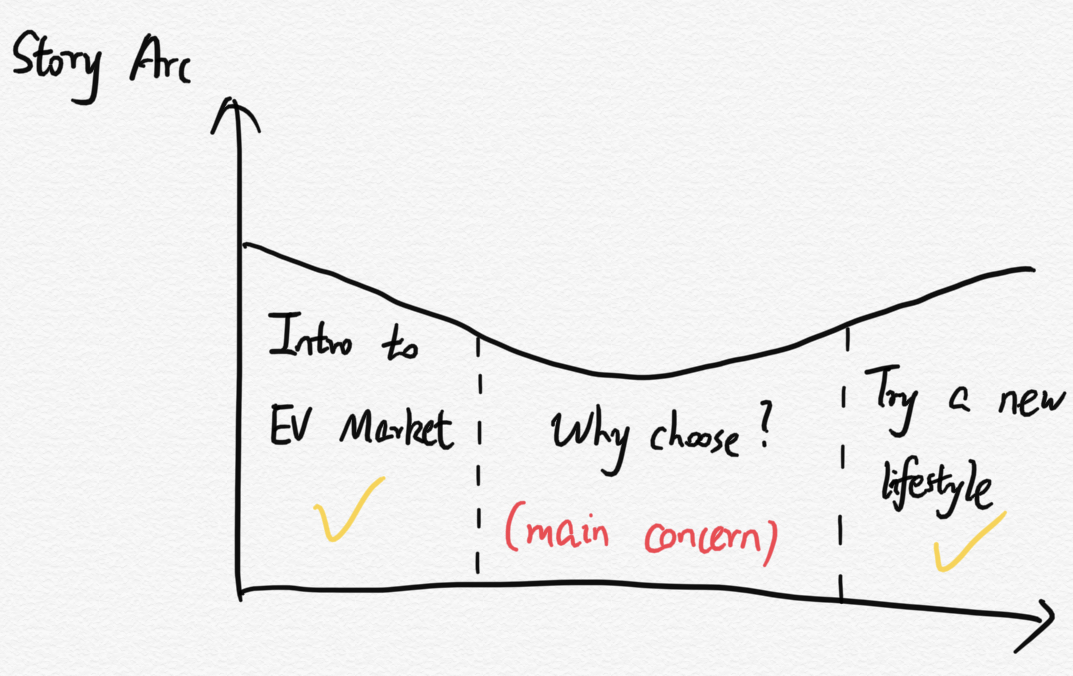 Story Arc
Intro to
EV Market
Why choose?
(main concern)
Try a new
lifestyle